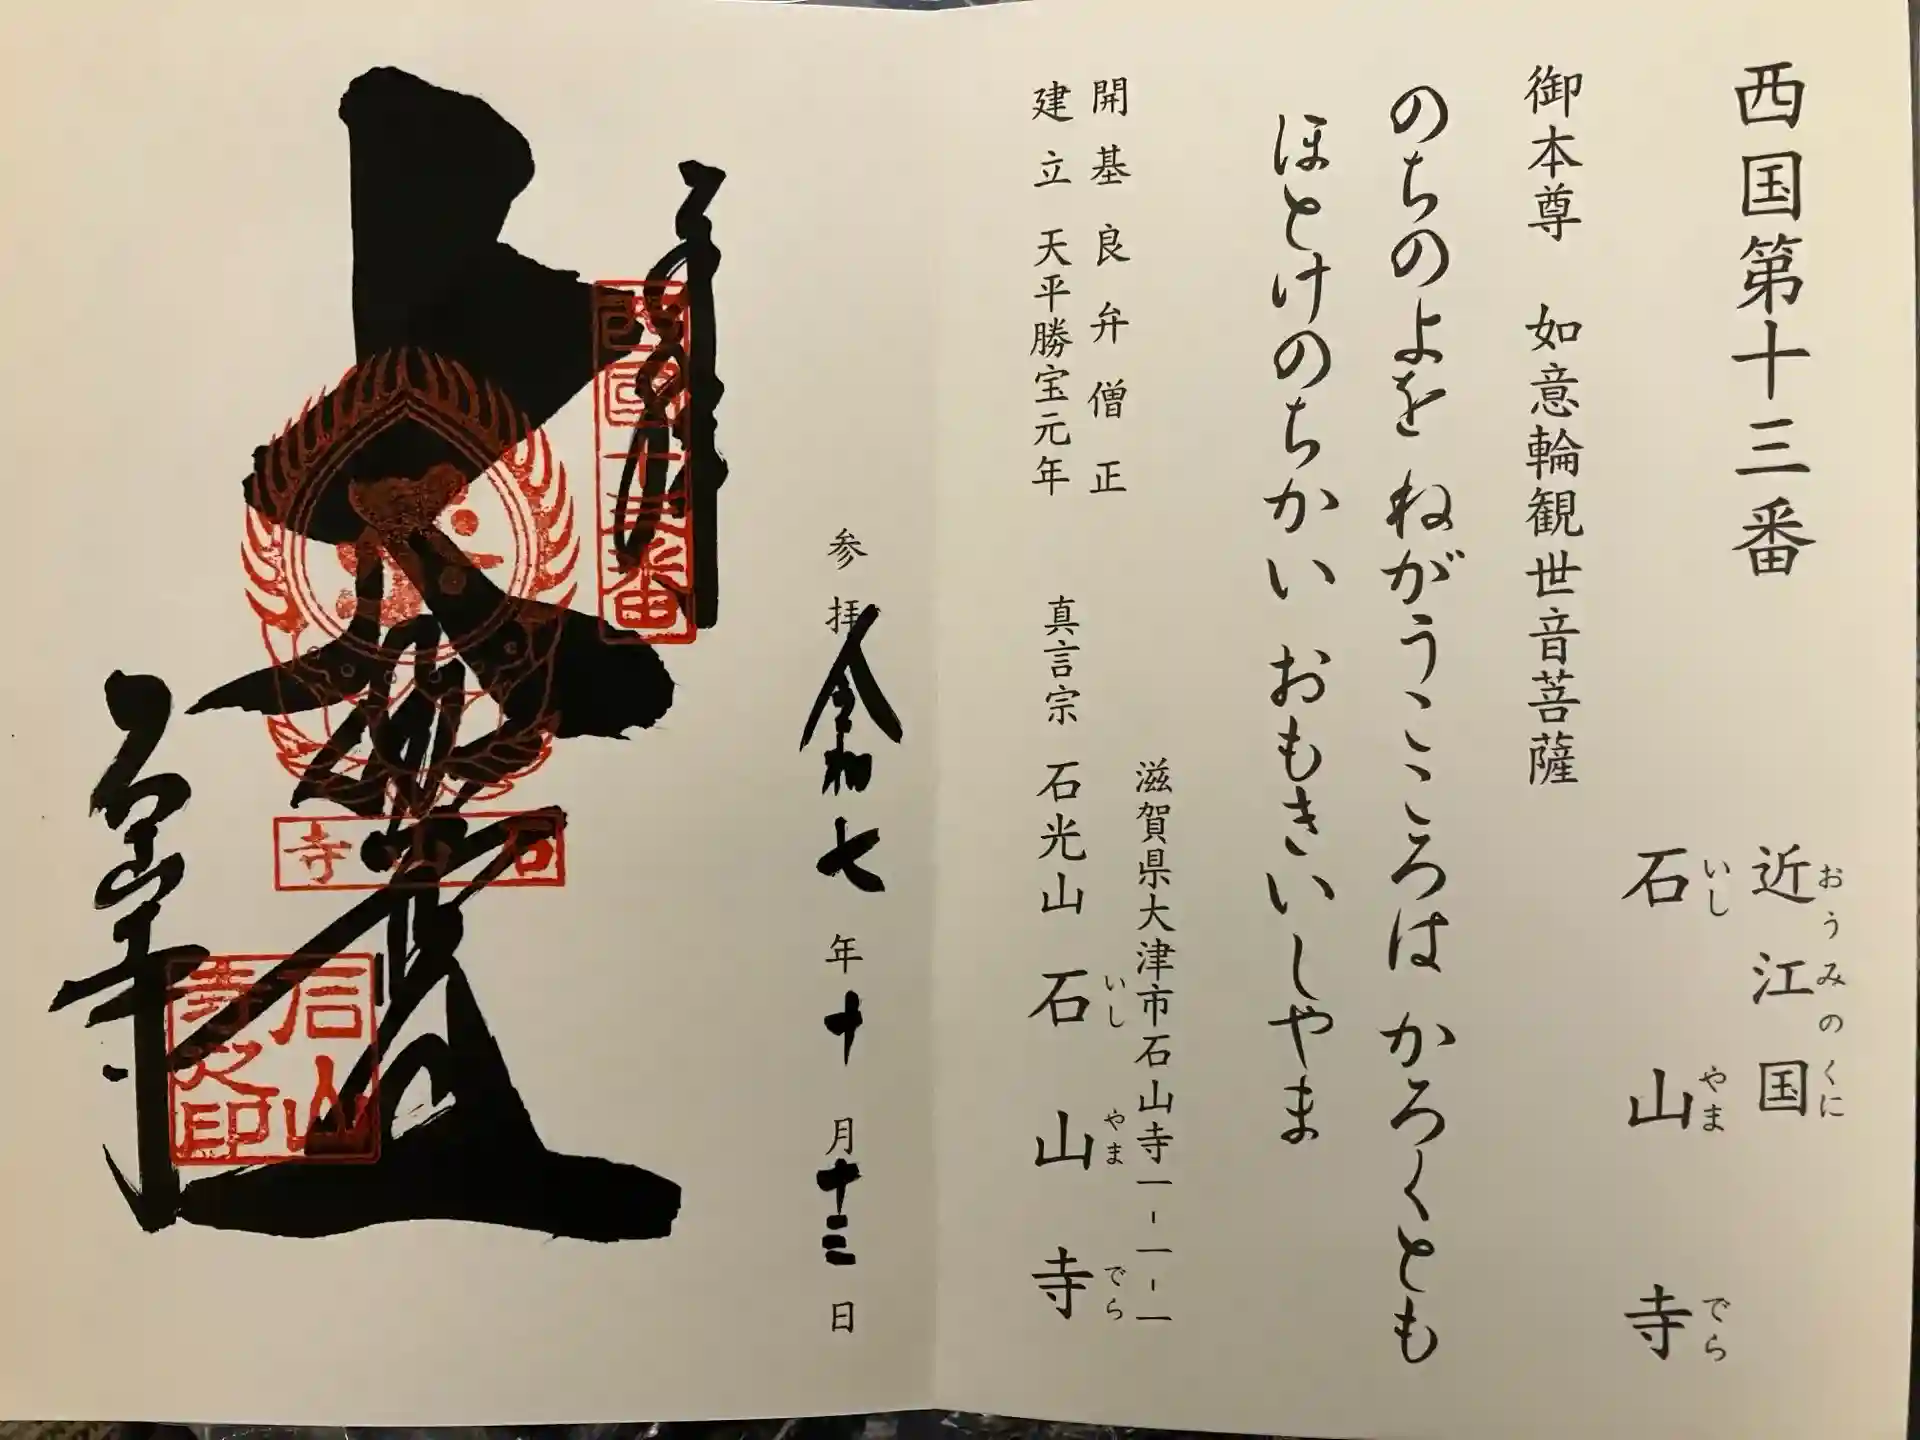 西国第十三番
近江国
おうみのくに
石山寺
いしやまでら
御本尊 如意輪観世音菩薩
のちのよを ねがうこゝろは かろくとも
ほとけのちかい おもきいしやま
開基 良弁僧正
建立 天平勝宝元年
滋賀県大津市石山寺一-一-一
真言宗 石光山 石山寺
いしやまでら
参拝 令和七年十月十三日
奉拝
西國十三番
大悲殿
石山寺
石山寺
石山寺之印